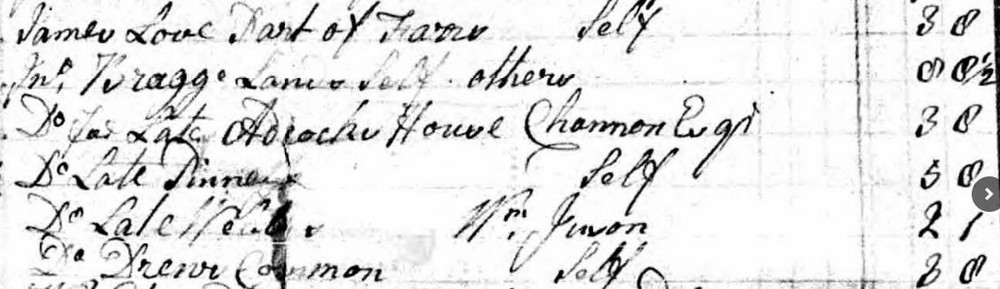 James Love Part of Farm Self 3 8
Mr. Bragge Land Self others 0 8½
Do for Late Adcocks House Channon Esqr 3 8
Do Late Pinneys Self 5 8
Do Late Webbers Wm. 2 1
Do Drews Common Self 3 8